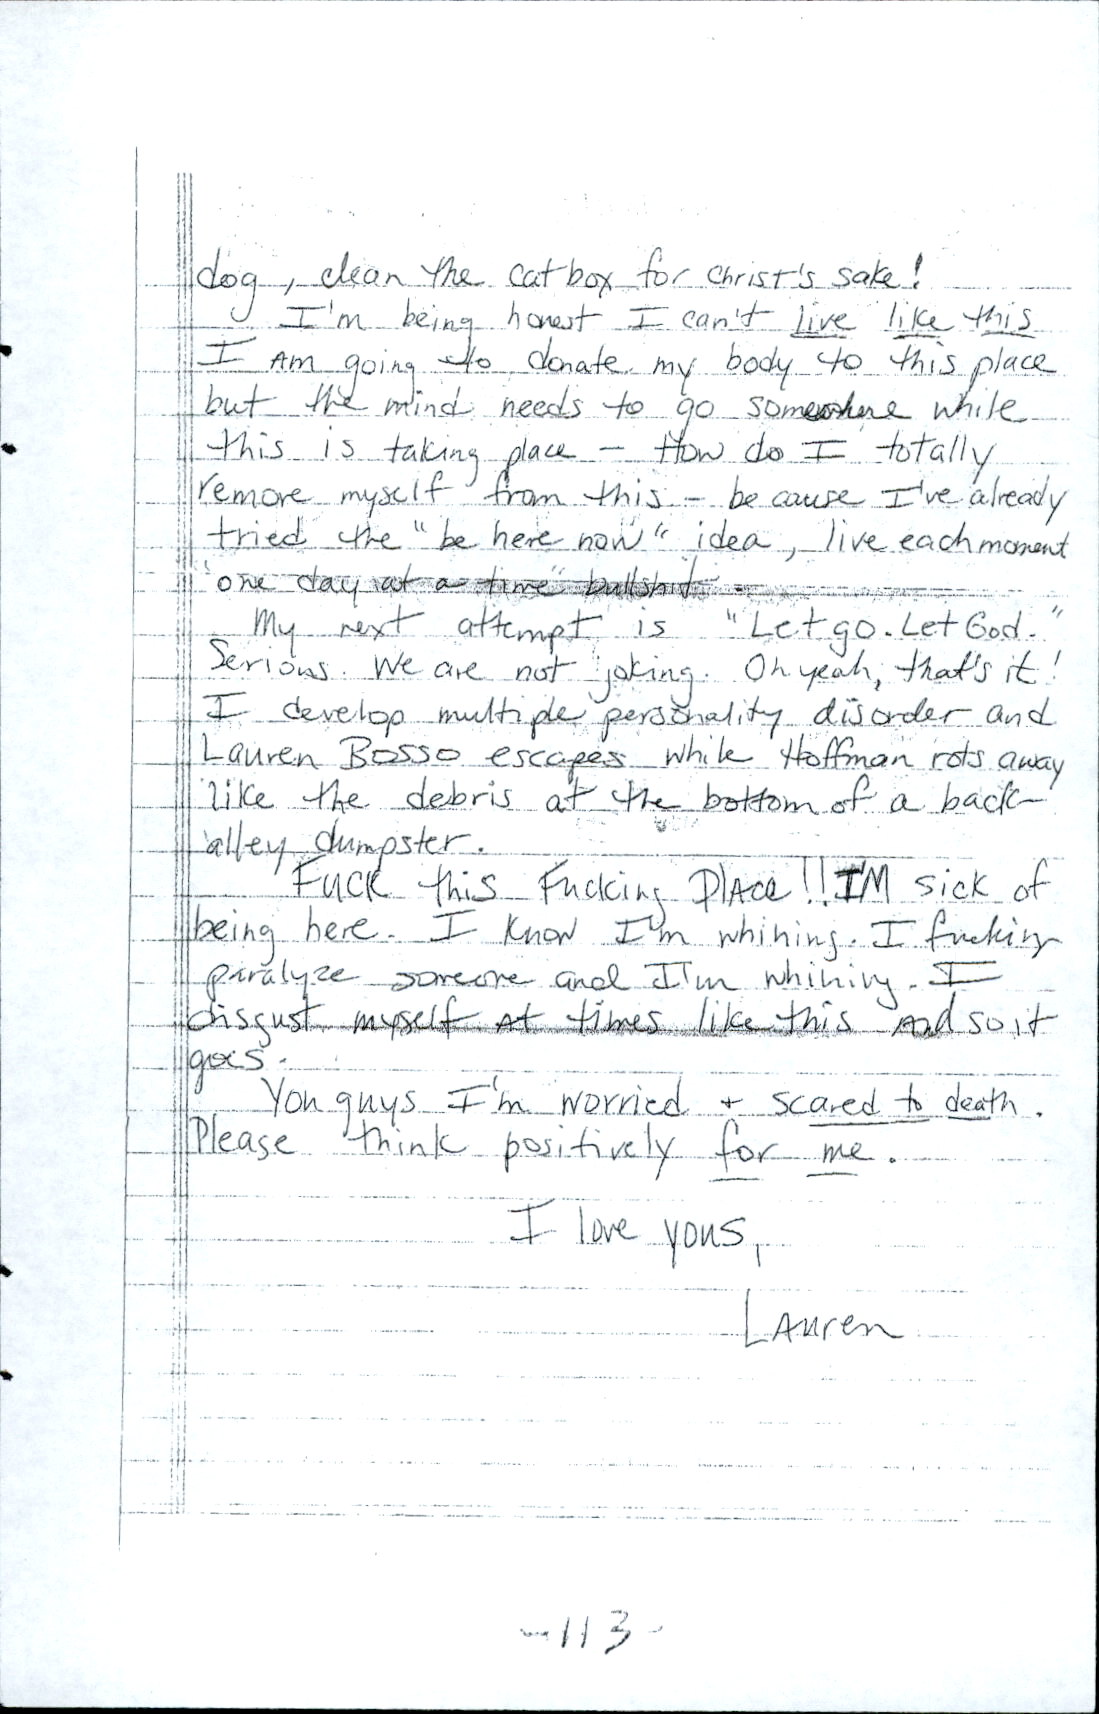 dog, clean the catbox for christ's sake!
I'm being honest I can't live like this
I AM going to donate my body to this place
but the mind needs to go somewhere while
this is taking place - How do I totally
remove myself from this - because I've already
tried the "be here now" idea, live each moment
"one day at a time" bullshit -
My next attempt is "Let go. Let God."
Serious. We are not joking. Oh yeah, that's it!
I develop multiple personality disorder and
Lauren Bosso escapes while Hoffman rots away
like the debris at the bottom of a back-
alley dumpster.
FUCK this Fucking PlAce!! I'M sick of
being here. I know I'm whining. I fucking
paralyze someone and I'm whining. I
disgust myself at times like this And so it
goes.
You guys I'm worried + scared to death.
Please think positively for me.
I love yous,
LAuren
-113-